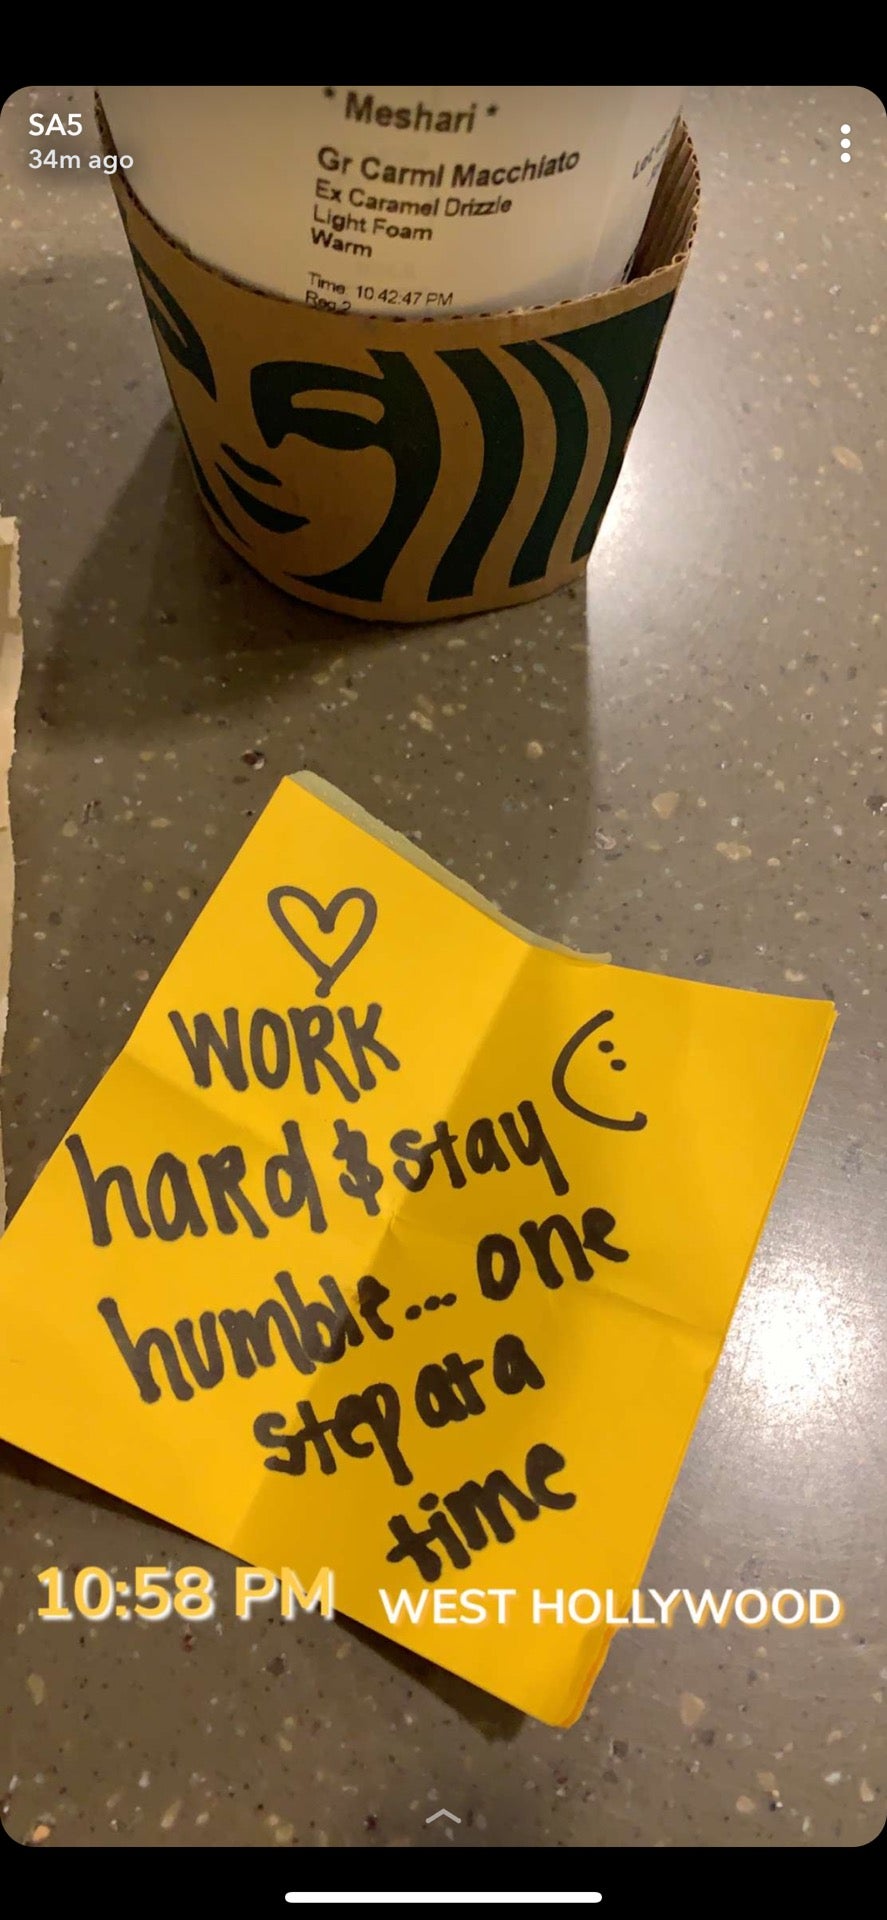 SA5
34m ago
* Meshari *
Gr Carml Macchiato
Ex Caramel Drizzle
Light Foam
Warm
Time 10:42:47 PM
Reg 2
WORK
hard & stay
humble... one
step at a
time
10:58 PM WEST HOLLYWOOD